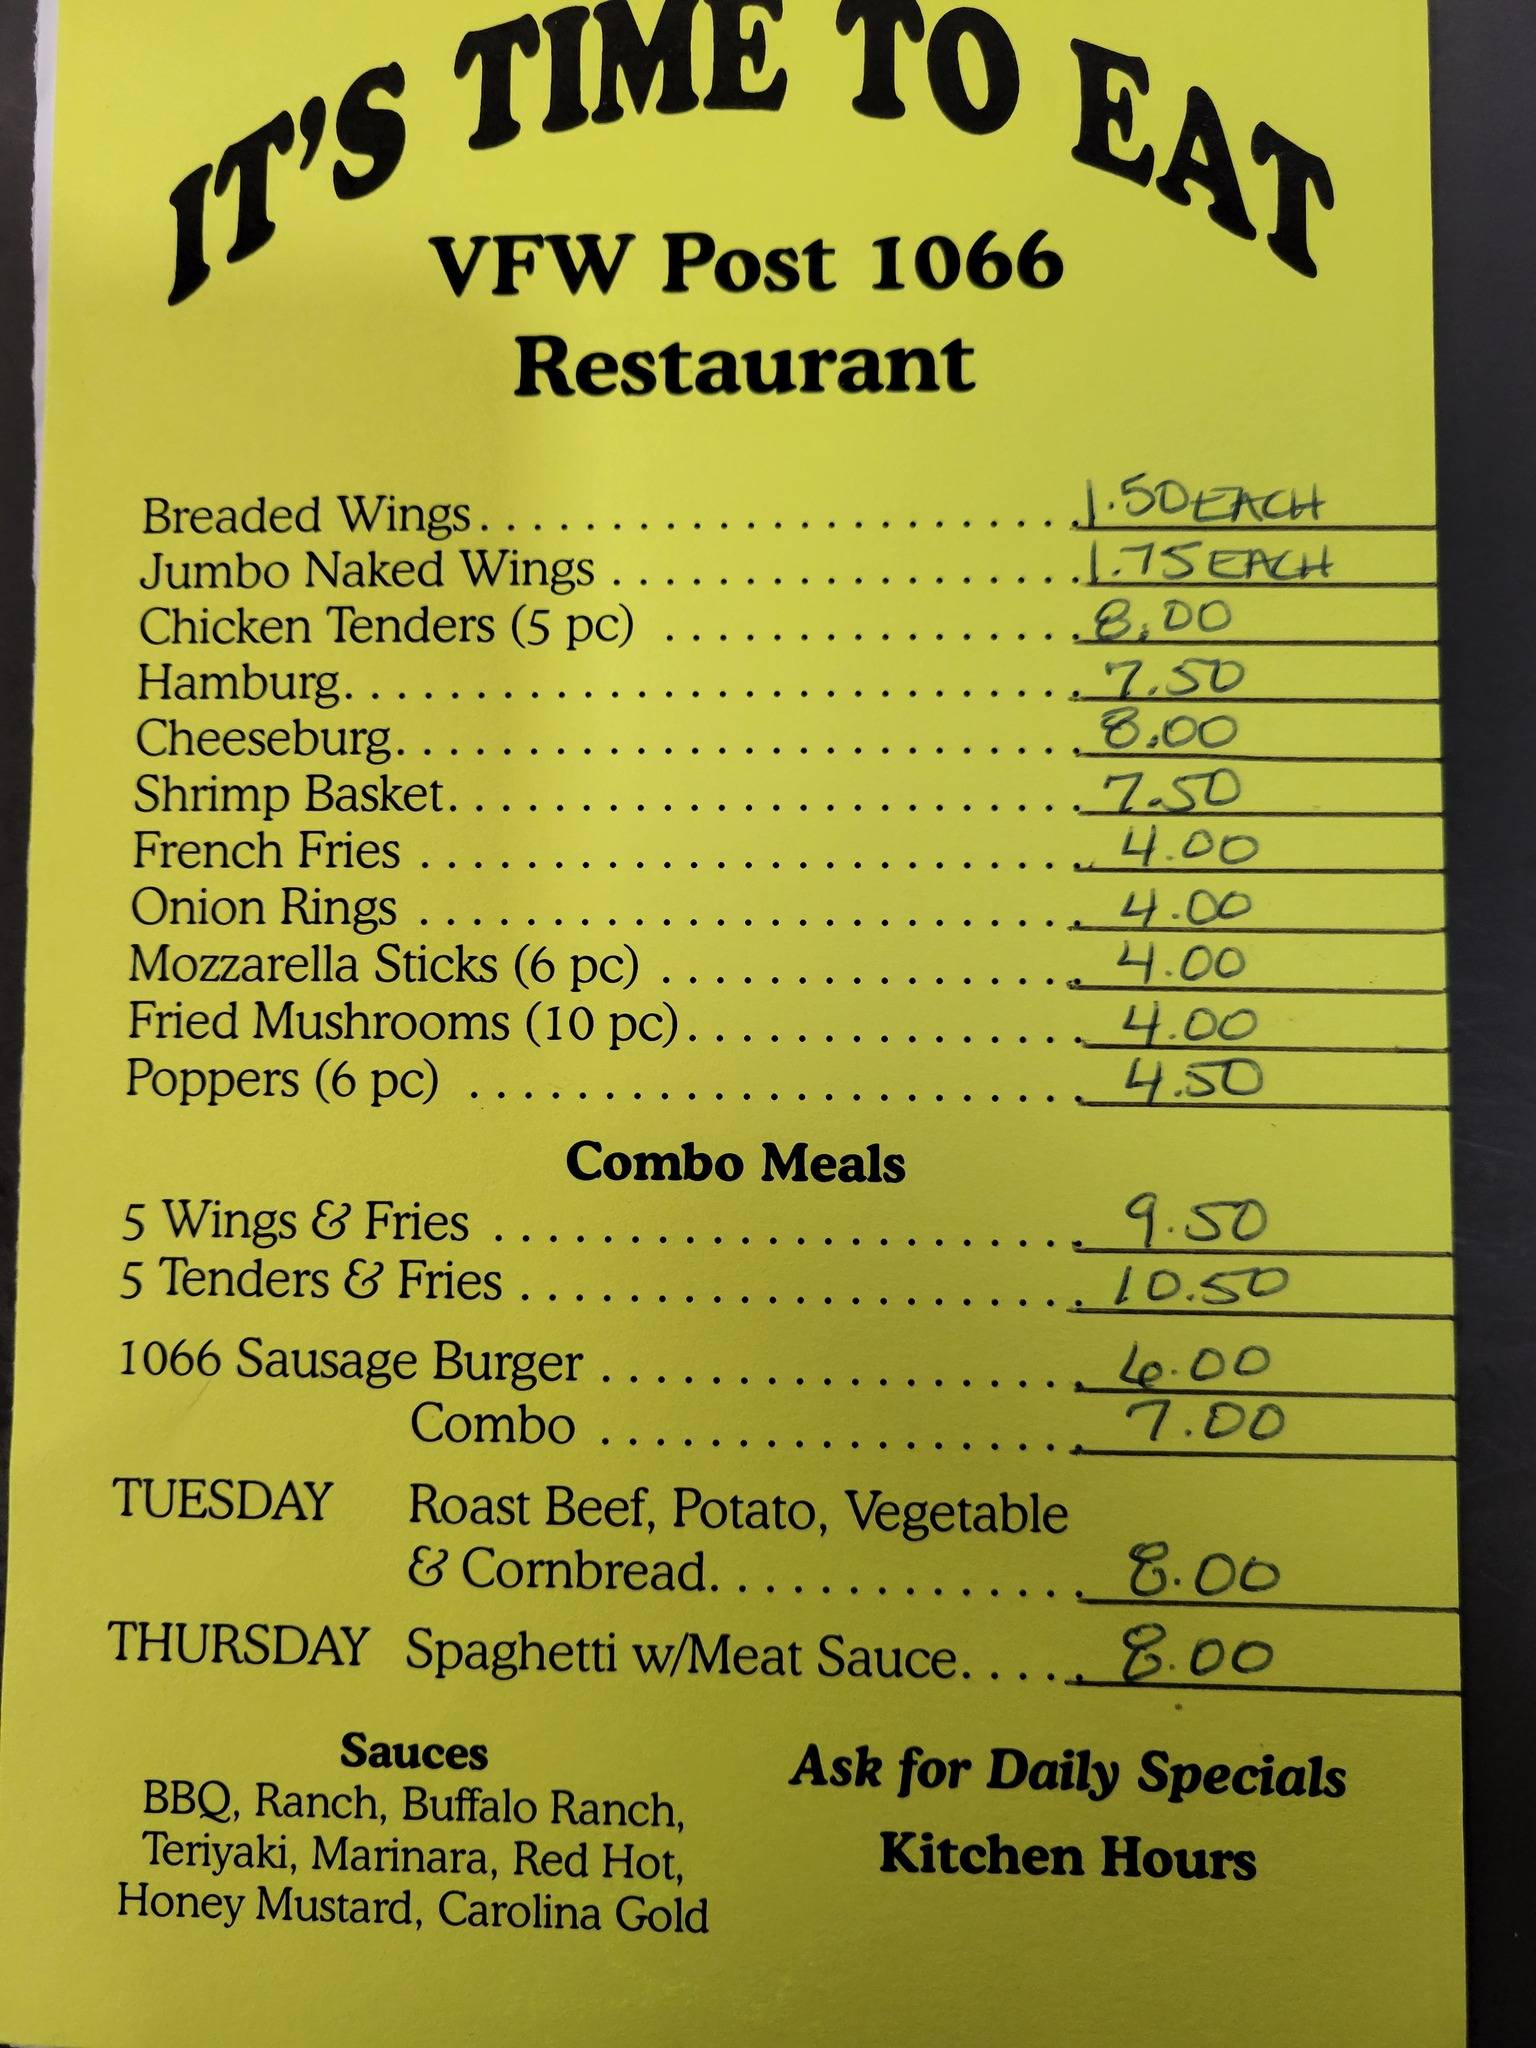 IT'S TIME TO EAT
VFW Post 1066
Restaurant
Breaded Wings........................1.50 EACH
Jumbo Naked Wings ..................1.75 EACH
Chicken Tenders (5 pc) ................8.00
Hamburg............................7.50
Cheeseburg..........................8.00
Shrimp Basket........................7.50
French Fries .........................4.00
Onion Rings .........................4.00
Mozzarella Sticks (6 pc) ................4.00
Fried Mushrooms (10 pc)...............4.00
Poppers (6 pc) .......................4.50
Combo Meals
5 Wings & Fries ......................9.50
5 Tenders & Fries .....................10.50
1066 Sausage Burger ..................6.00
Combo ..................7.00
TUESDAY Roast Beef, Potato, Vegetable
& Cornbread..............8.00
THURSDAY Spaghetti w/Meat Sauce.....8.00
Sauces
BBQ, Ranch, Buffalo Ranch,
Teriyaki, Marinara, Red Hot,
Honey Mustard, Carolina Gold
Ask for Daily Specials
Kitchen Hours